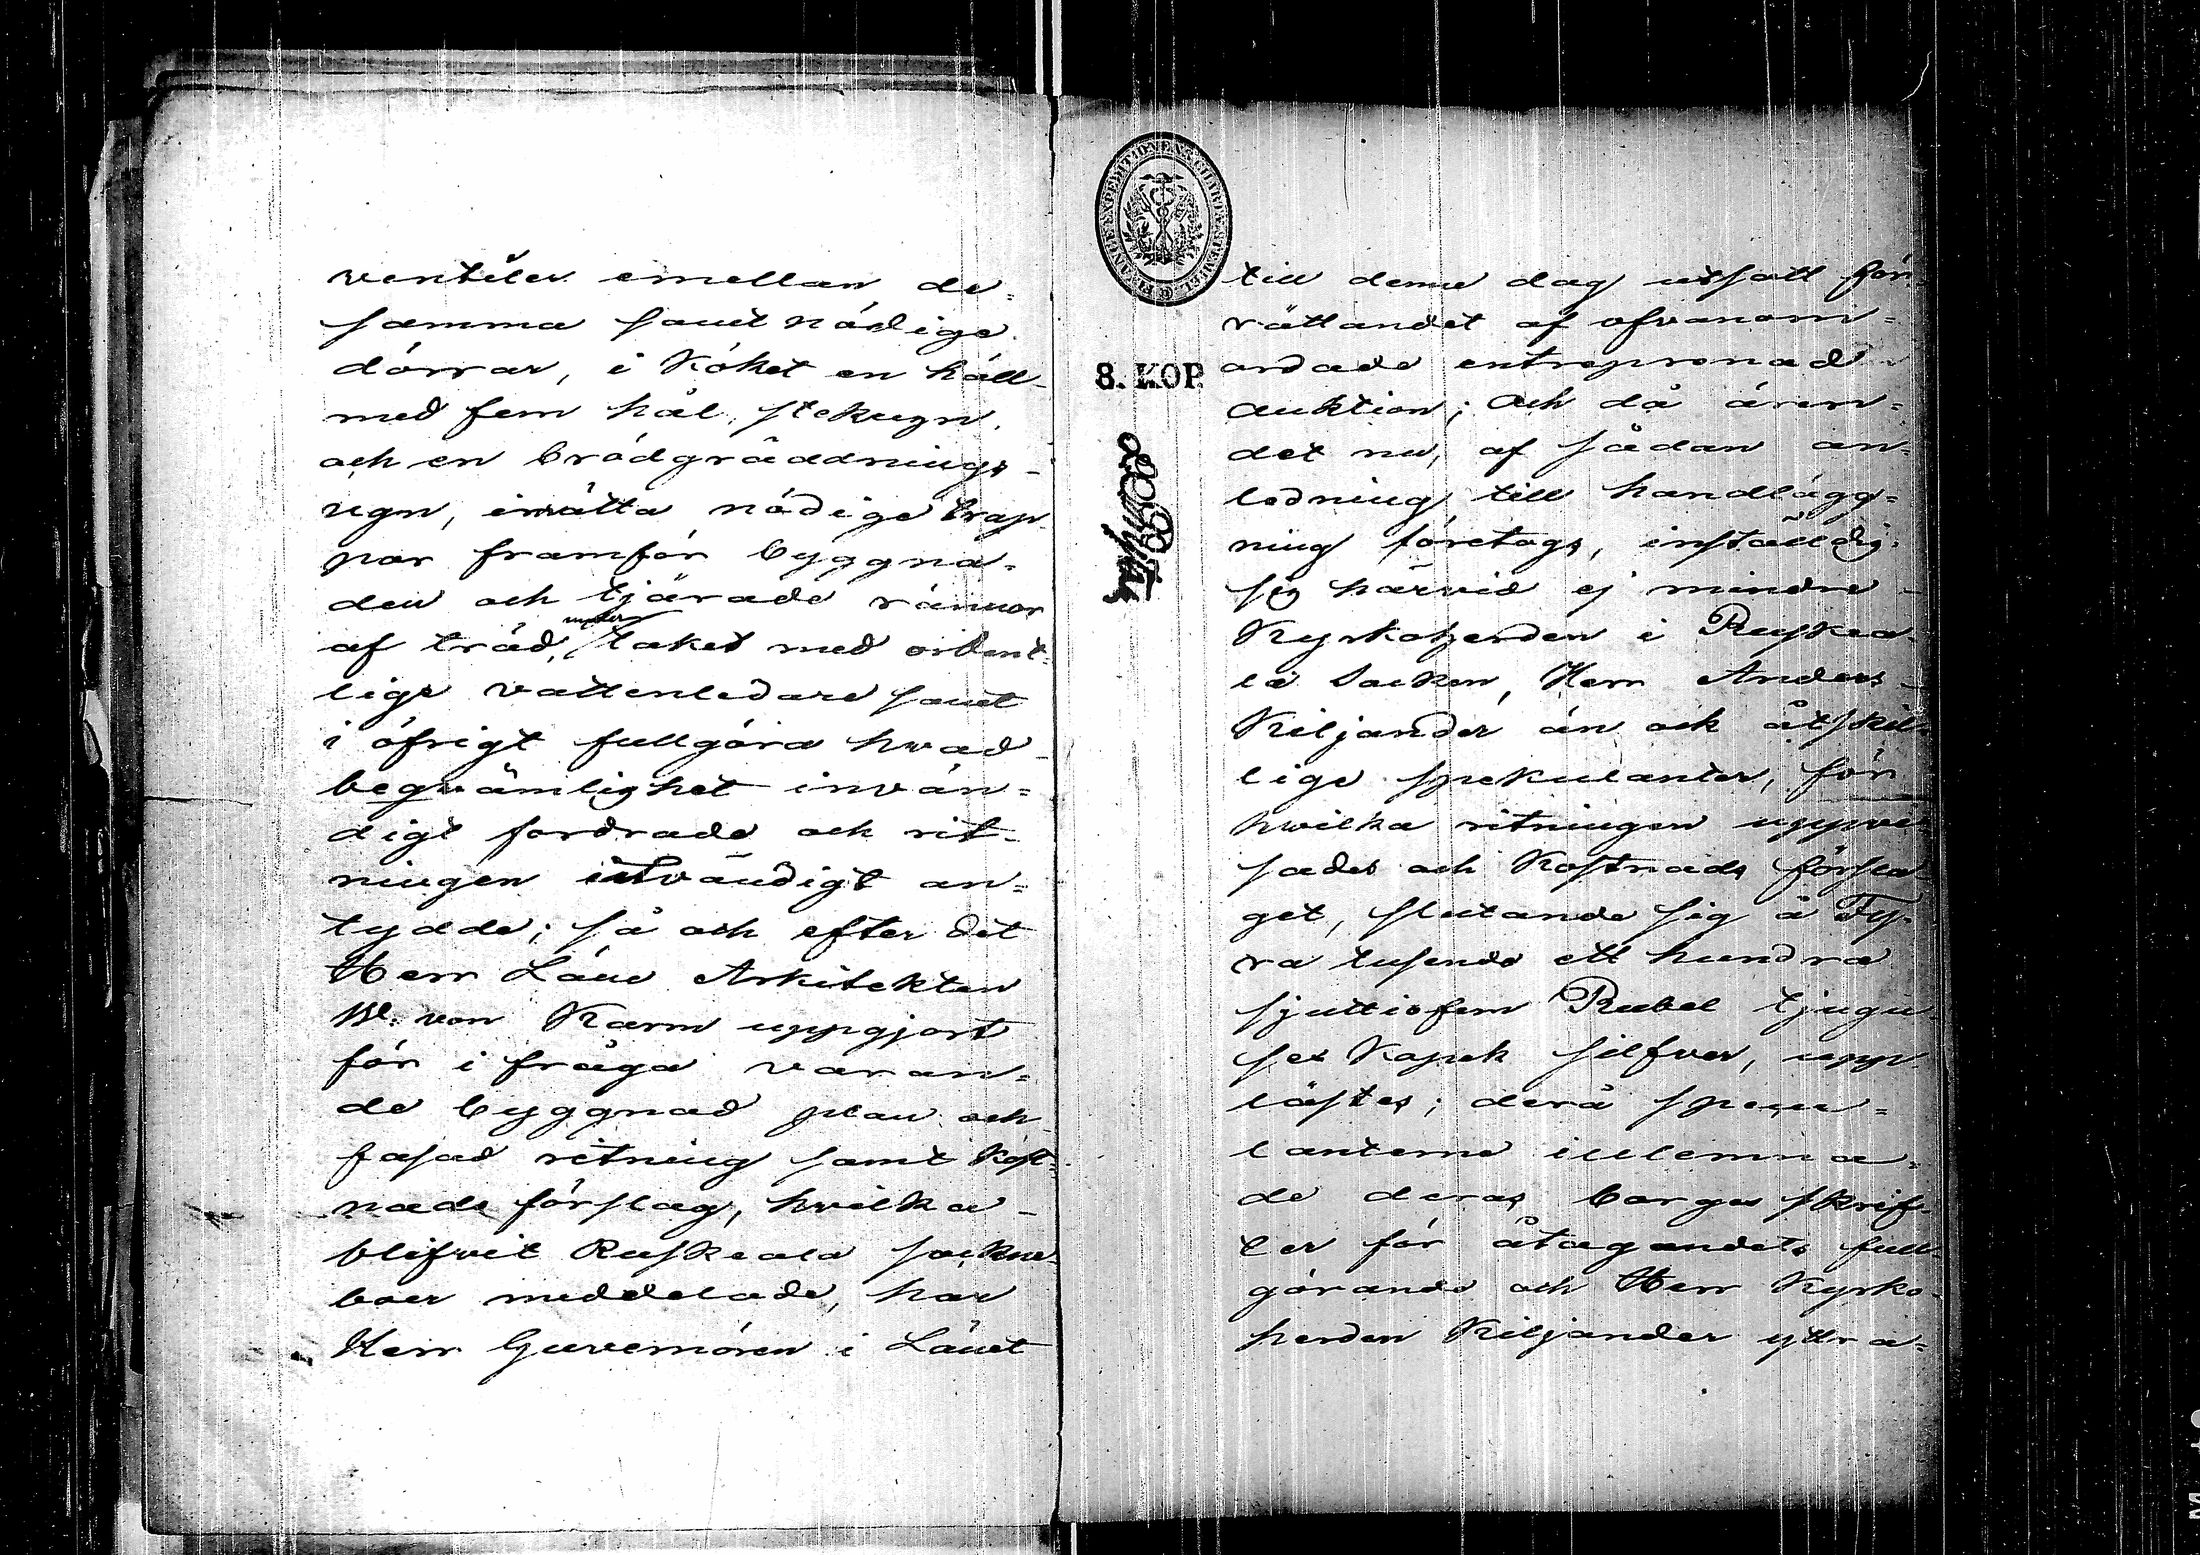 ventiler emellan de=
samma samt nödige
dörrar, i Köket en häll
med fem hål, stekugn,
och en brödgräddnings-
ugn, inrätta nödige trap
por framför byggna=
den och tjärade rännor
af träd, under taket med ordent=
lige vattenledare samt
i öfrigt fullgöra hvad
beqvämlighet invän=
digt fordrade och rit=
ningen utvändigt an=
tydde; så och efter det
Herr Läns Arkitekten
von Karm uppgjort
för i fråga varan=
de byggnad plan och
fasad ritning samt Kost=
nads förslag, hvilka
blifvit Ruskeala sockne
boer meddelade, har
Herr Guvernören i Länet
FINANCE EXPEDITIONENS CHARTÆ STEMPEL
8. KOP.
till denne dag utsatt för=
rättandet af ofvanom=
ordade entreprenad
auktion; och då ären=
det nu, af sådan an=
ledning till handlägg=
ning företogs, inställde
sig härvid ej mindre
Kyrkoherden i Ruskea=
la Socken, Herr Anders
Kiljander än och åtskil=
lige spekulanter, för
hvilka ritningen uppvi
sades och Kostnads försla
get, slutande sig å Fy=
ra tusende ett hundra
sjuttiofem Rubel tjugu
sex Kopek silfver, upp
lästes; derå speku=
lanterne inlemna=
de deras borges skrif=
ter för åtagandets full=
görande och Herr Kyrko=
herden Kiljander yttra=